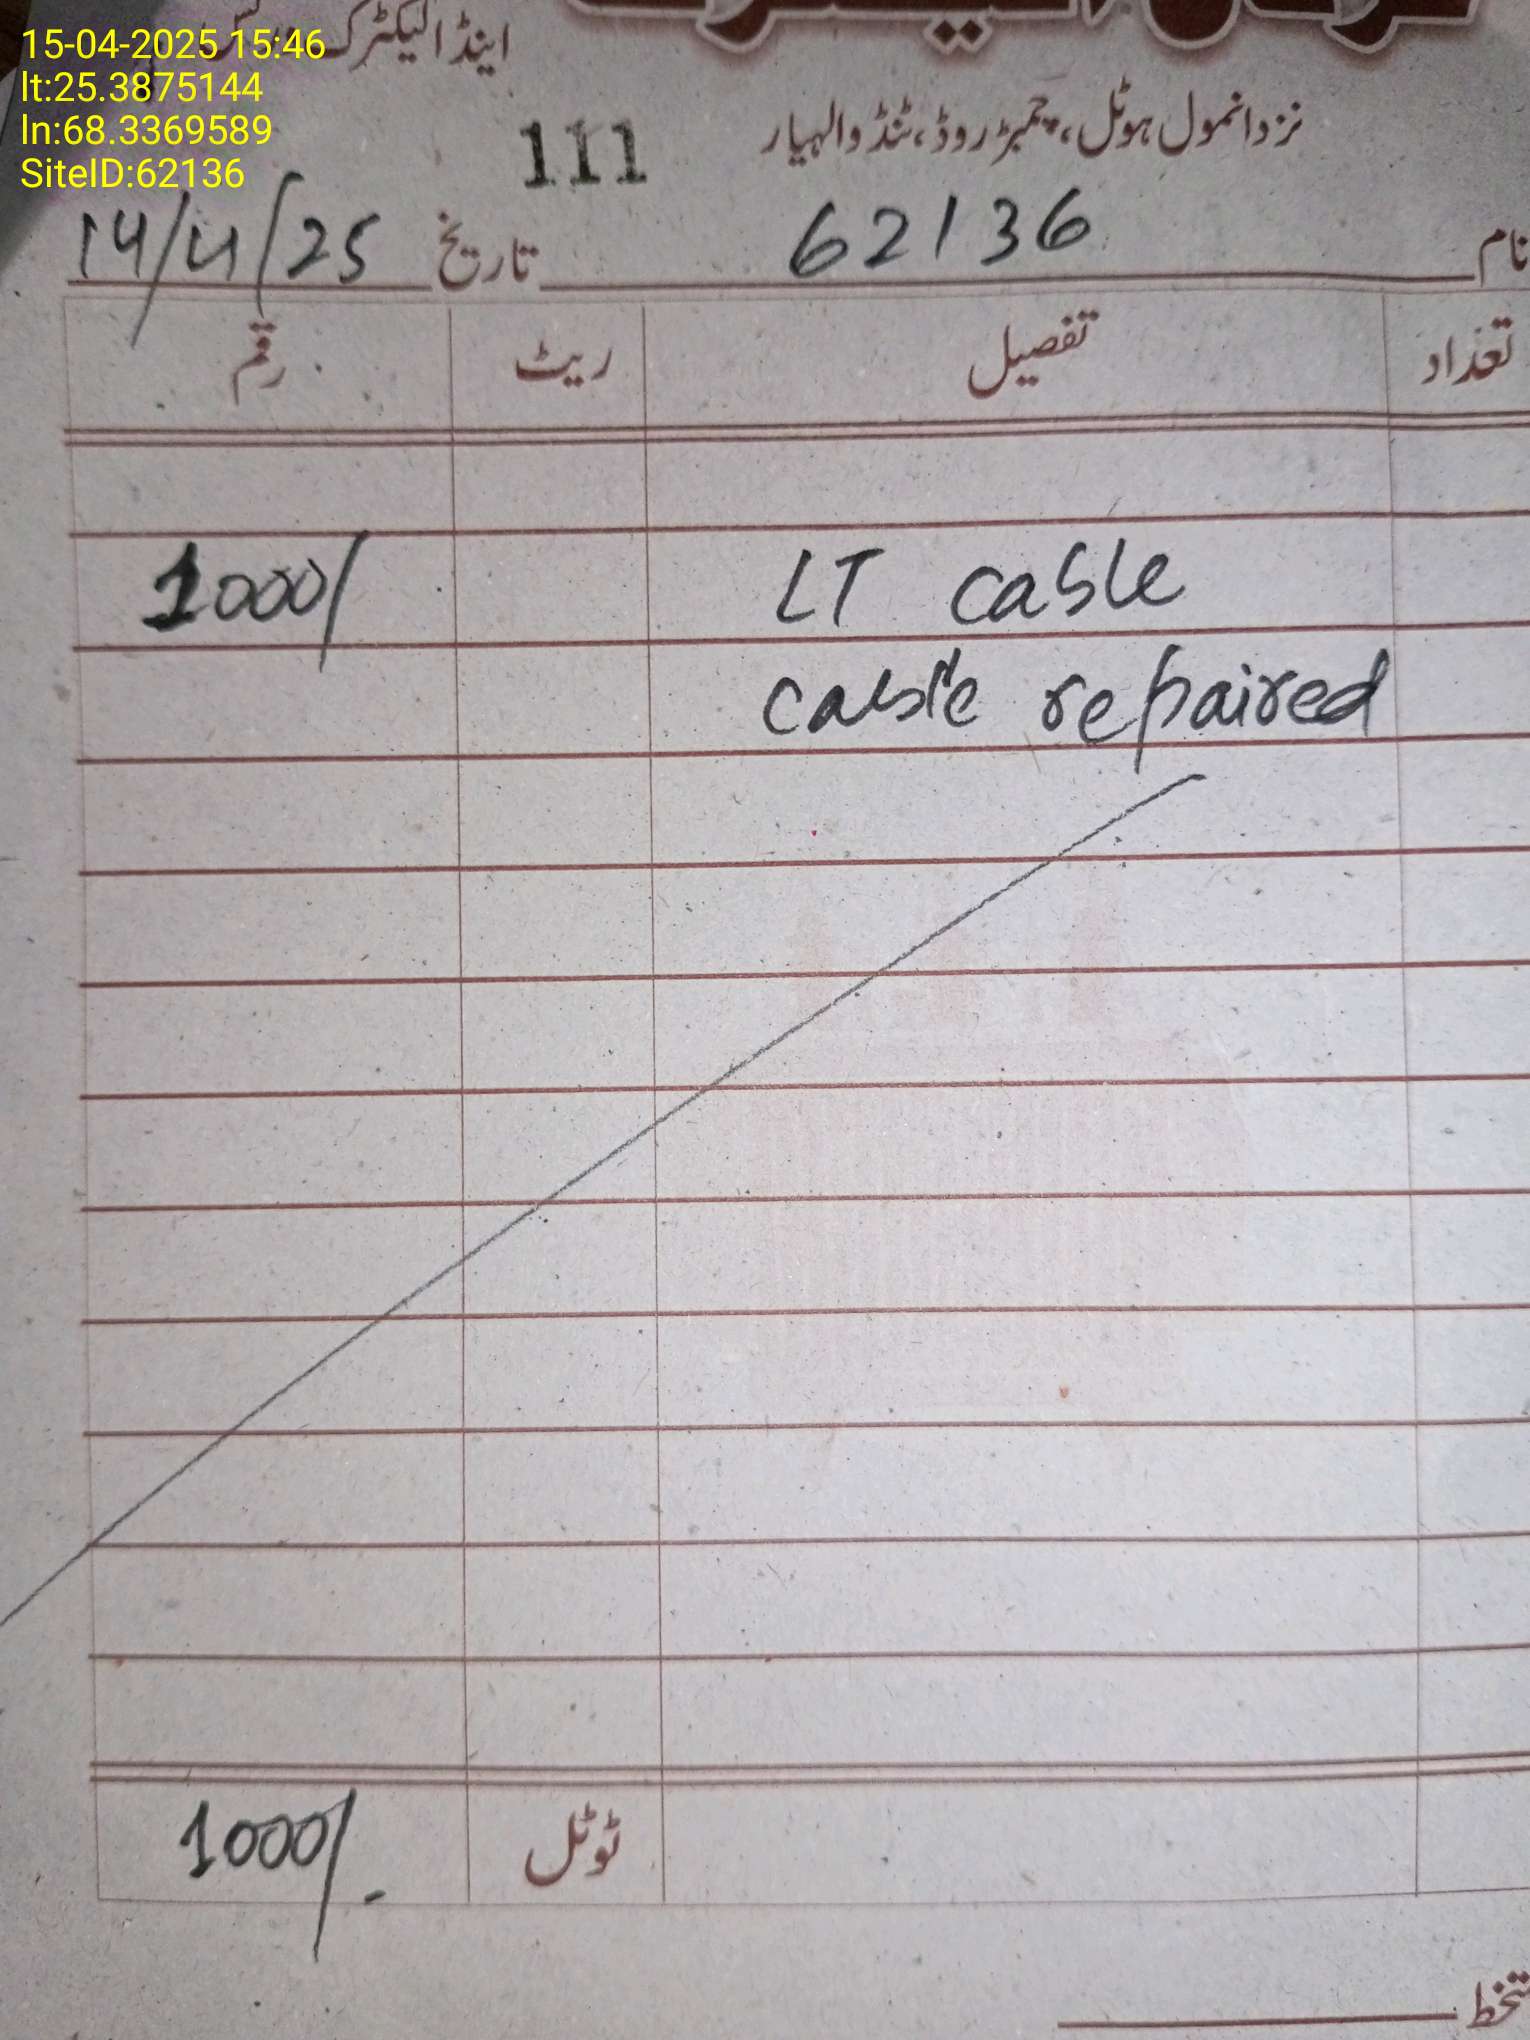 15-04-2025 15:46
lt:25.3875144
ln:68.3369589
SiteID:62136
اینڈ الیکٹرک
نزد انمول ہوٹل، چمبڑ روڈ، ٹنڈوالہیار
111
نام 62136 تاریخ 14/4/25
تعداد تفصیل ریٹ رقم
LT cable 1000/
cable repaired
ٹوٹل 1000/-